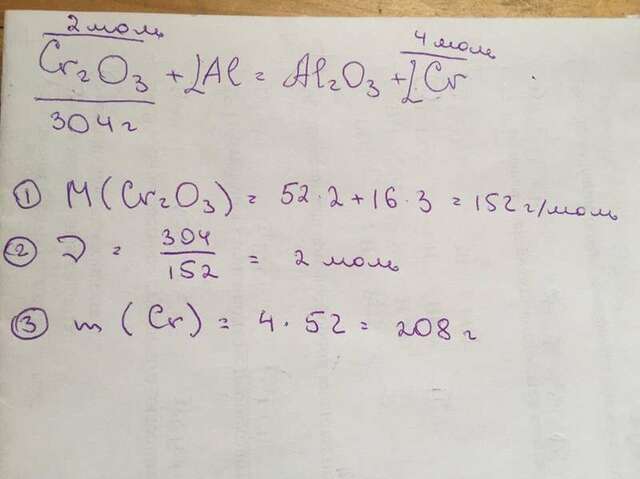 2 моль 4 моль
Cr₂O₃ + 2Al = Al₂O₃ + 2Cr
304 г
① M(Cr₂O₃) = 52·2+16·3 = 152 г/моль
② ν = 304/152 = 2 моль
③ m (Cr) = 4·52 = 208 г